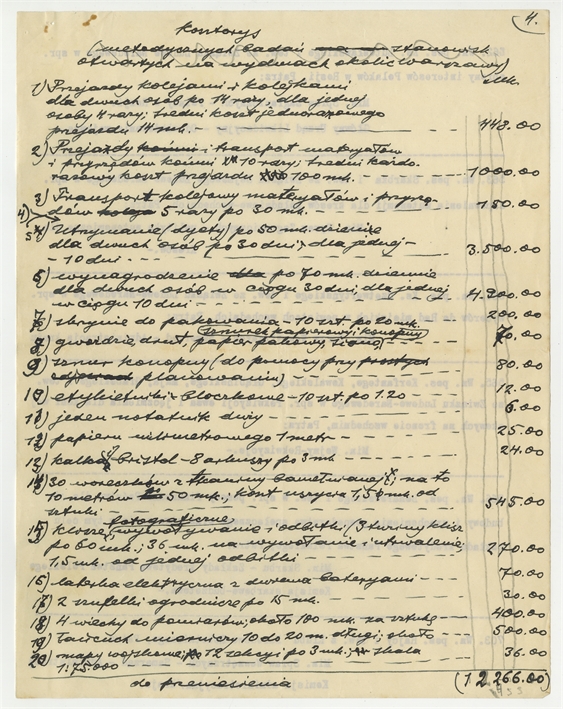 4.
Kosztorys
(metodycznych badań stanowisk
otwartych na wydmach okolic Warszawy)
Mk.
1) Przejazdy kolejami i kolejkami
dla dwuch osób po 14 razy, dla jednej
osoby 4 razy; średni koszt jednorazowego
przejazdu 14 mk. 448.00
2) Przejazdy i transport materyałów
i przyrządów końmi 10 razy; średni każdo
razowy koszt przejazdu 100 mk. 1000.00
3) Transport kolejowy materyałów i przyrzą-
dów 5 razy po 30 mk. 150.00
4) Utrzymanie (dyety) po 50 mk. dziennie
dla dwuch osób po 30 dni, dla jednej
10 dni 3.500.00
5) wynagrodzenie po 70 mk. dziennie
dla dwuch osób w ciągu 30 dni, dla jednej
w ciągu 10 dni 4.900.00
skrzynie do pakowania - 10 szt. po 20 mk. 200.00
sznurek papierowy, konopny
8) gwoździe, drut, papier pakowy, siano 70.00
9) sznur konopny (do pomocy przy
planowaniu) 80.00
10) etykietniki blockowe - 10 szt. po 1.20 12.00
11) jeden notatnik duży 6.00
12) papieru milimetrowego 1 metr 25.00
13) kalka, Bristol - 8 arkuszy po 3 mk. 24.00
14) 30 woreczków z tkaniny bawełnianej; na to
10 metrów 50 mk.; koszt uszycia 1,50 mk. od
sztuki 545.00
fotograficzne
15) klisze, wywoływanie i odbitki (3 tuziny klisz
po 60 mk.; 36 mk. na wywołanie i utrwalenie,
1,5 mk. od jednej odbitki 270.00
16) latarka elektryczna z dwiema bateryami 70.00
17) 2 szufelki ogrodnicze po 15 mk. 30.00
18) 4 wiechy do pomiarów, około 100 mk. za sztukę 400.00
19) łańcuch mierniczy 10 do 20 m. długi, około 500.00
20) mapy wojskowe, 12 sekcyi po 3 mk. skala
1:75000 36.00
do przeniesienia (12.266.00)